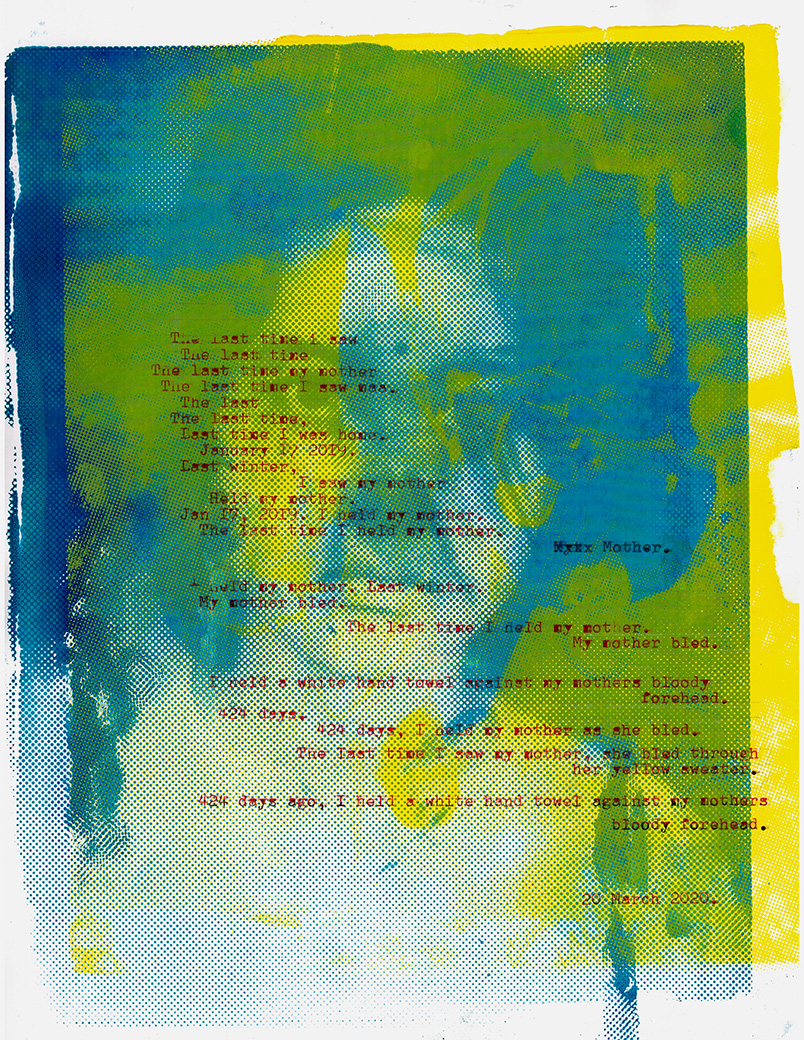 The last time I saw
The last time
The last time my mother
The last time I saw was.
The last
The last time,
Last time I was home.
January 17 2019.
Last winter,
I saw my mother
Held my mother.
Jan 17, 2019. I held my mother.
The last time I held my mother.
Mother.
I held my mother. Last winter.
My mother bled.
The last time I held my mother.
My mother bled.
I held a white hand towel against my mothers bloody
forehead.
424 days.
424 days, I held my mother as she bled.
The last time I saw my mother, she bled through
her yellow sweater.
424 days ago, I held a white hand towel against my mothers
bloody forehead.
20 March 2020.